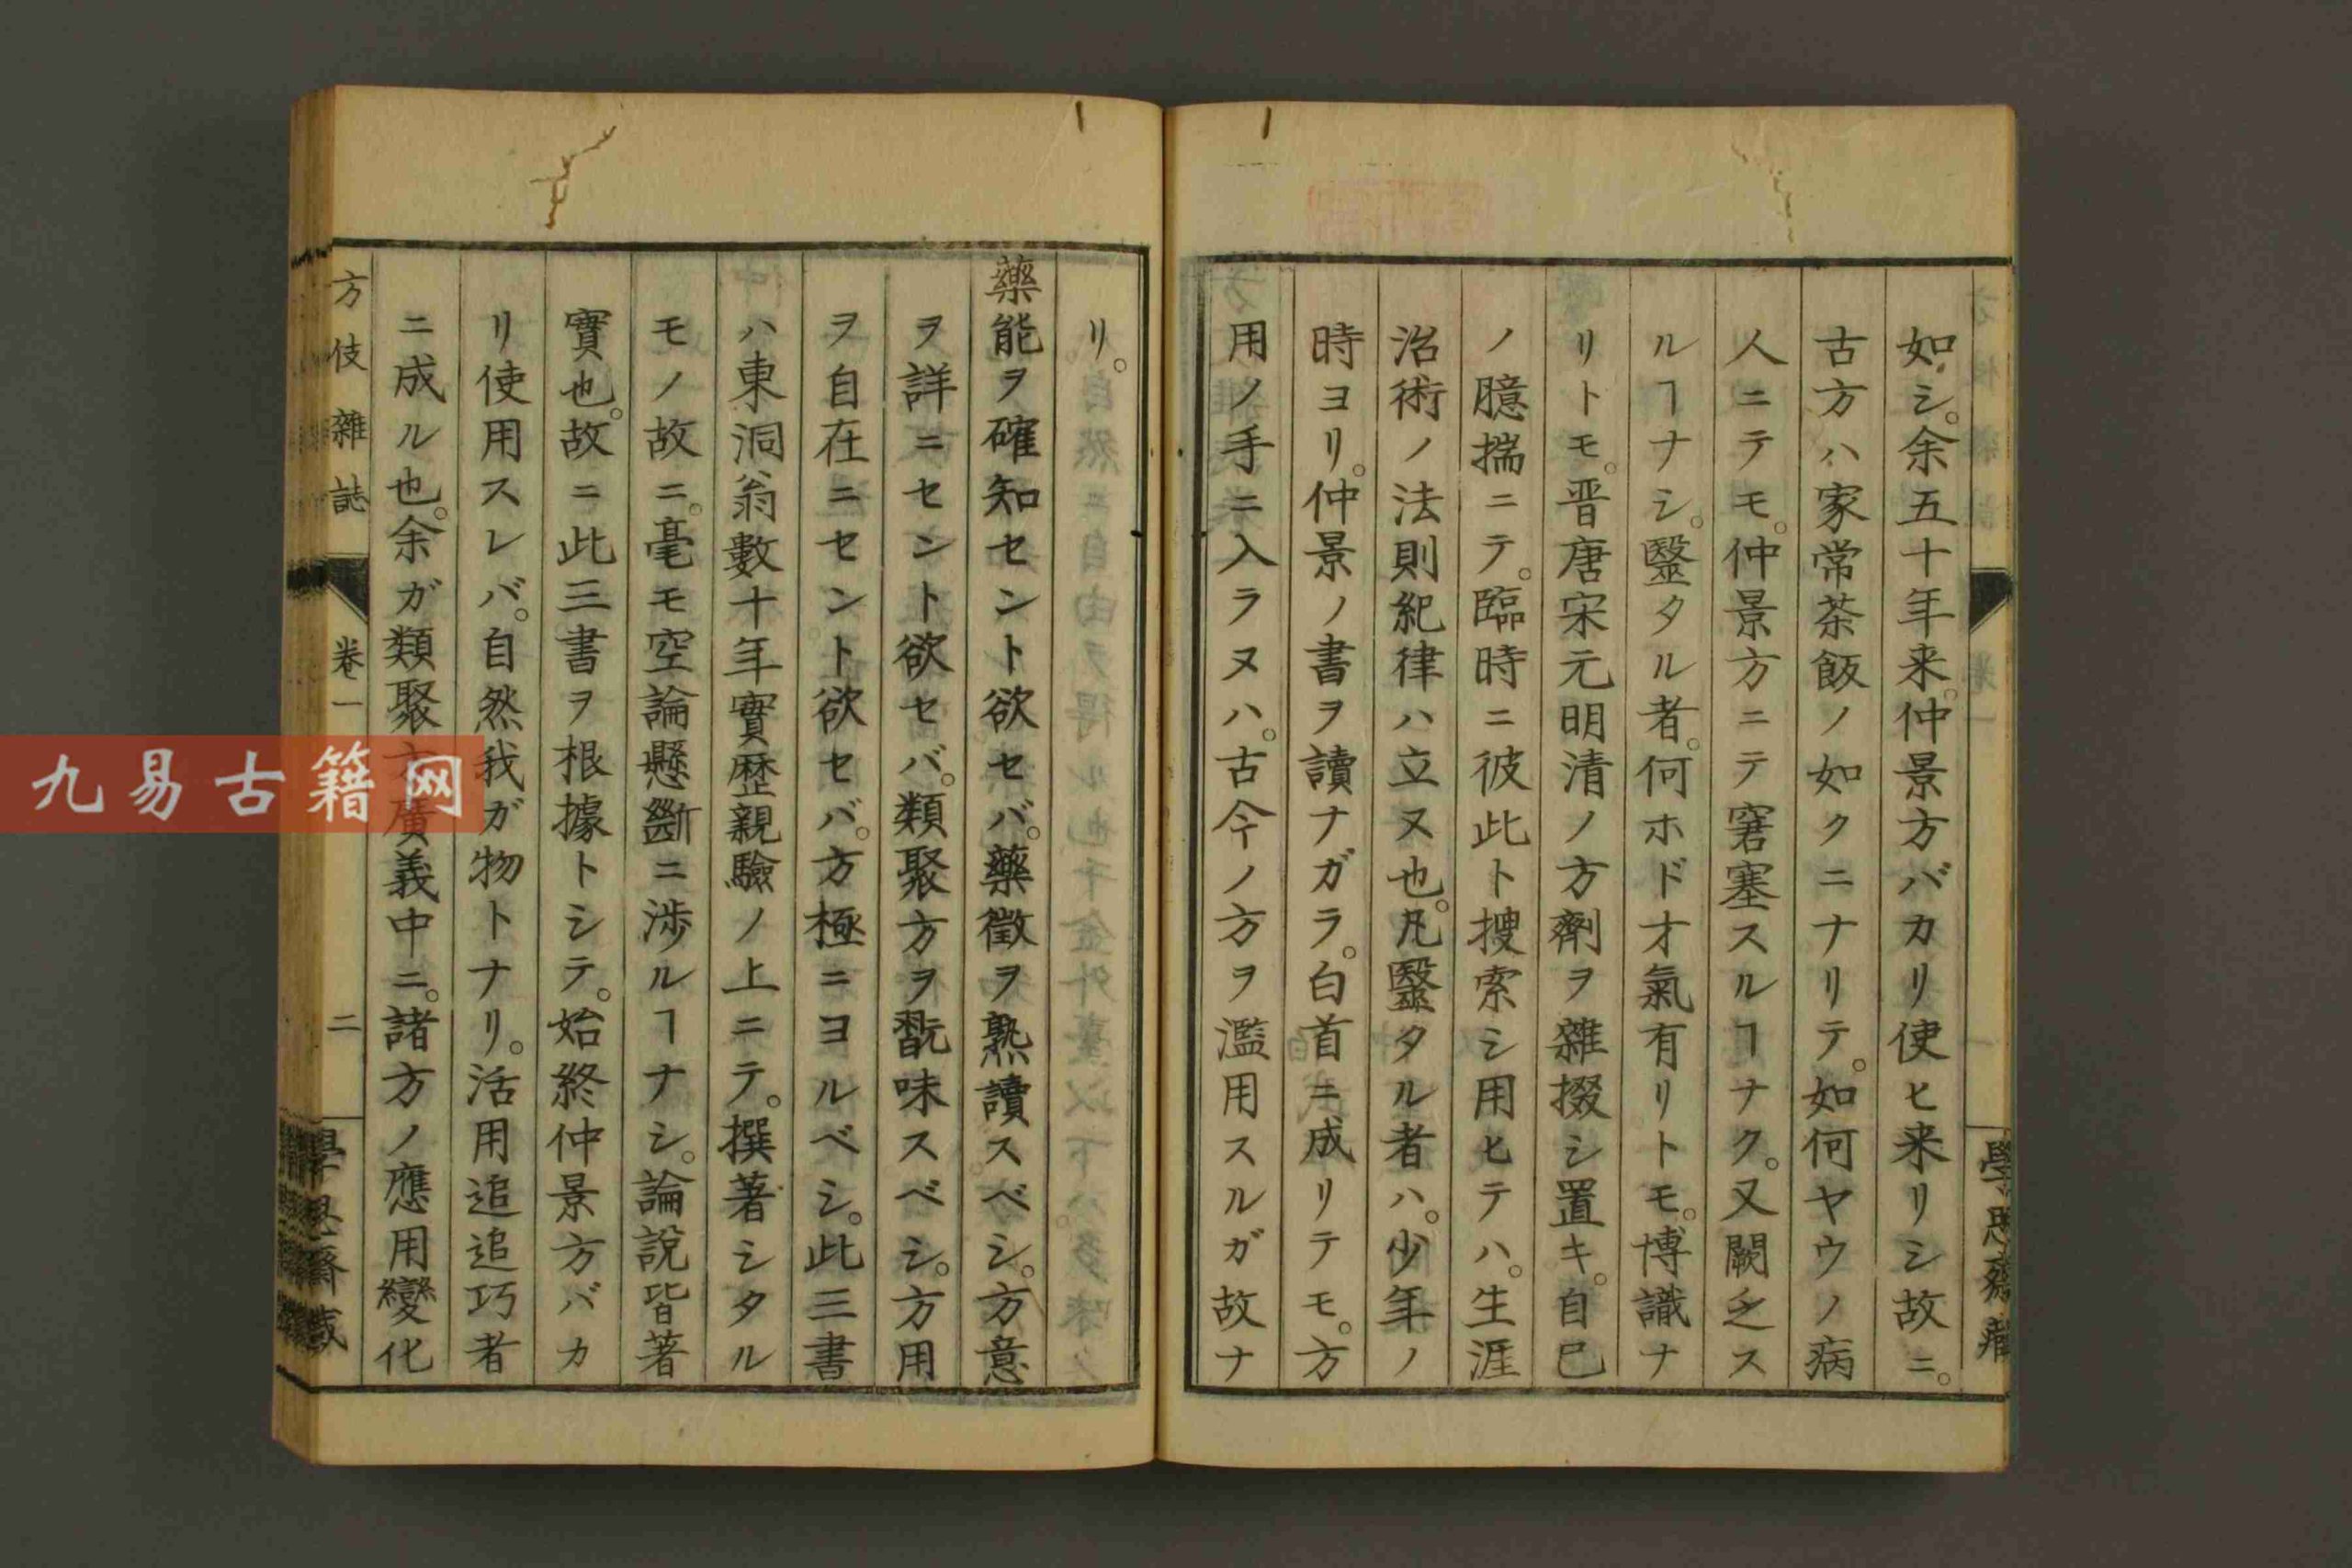 如シ。余五十年来。仲景方バカリ使ヒ来リシ故ニ。
古方ハ家常茶飯ノ如クニナリテ。如何ヤウノ病
人ニテモ。仲景方ニテ窘塞スルヿナク。又闕乏ス
ルヿナシ。毉タル者。何ホド才氣有リトモ。博識ナ
リトモ。晋唐宋元明清ノ方劑ヲ雜掇シ置キ。自已
ノ臆揣ニテ。臨時ニ彼此ト搜索シ用ヒテハ。生涯
治術ノ法則紀律ハ立ヌ也。凡毉タル者ハ。少年ノ
時ヨリ。仲景ノ書ヲ讀ナガラ。白首ニ成リテモ。方
用ノ手ニ入ラヌハ。古今ノ方ヲ濫用スルガ故ナ
リ。
藥能ヲ確知セント欲セバ。藥徵ヲ熟讀スベシ。方意
ヲ詳ニセント欲セバ。類聚方ヲ翫味スベシ。方用
ヲ自在ニセント欲セバ。方極ニヨルベシ。此三書
ハ東洞翁數十年實歷親驗ノ上ニテ。撰著シタル
モノ故ニ。毫モ空論懸斷ニ涉ルヿナシ。論說皆著
實也。故ニ此三書ヲ根據トシテ。始終仲景方バカ
リ使用スレバ。自然我ガ物トナリ。活用追追巧者
ニ成ル也。余ガ類聚方廣義中ニ。諸方ノ應用變化
方伎雜誌 卷一 二 學思齋藏
學思齋藏
九易古籍网